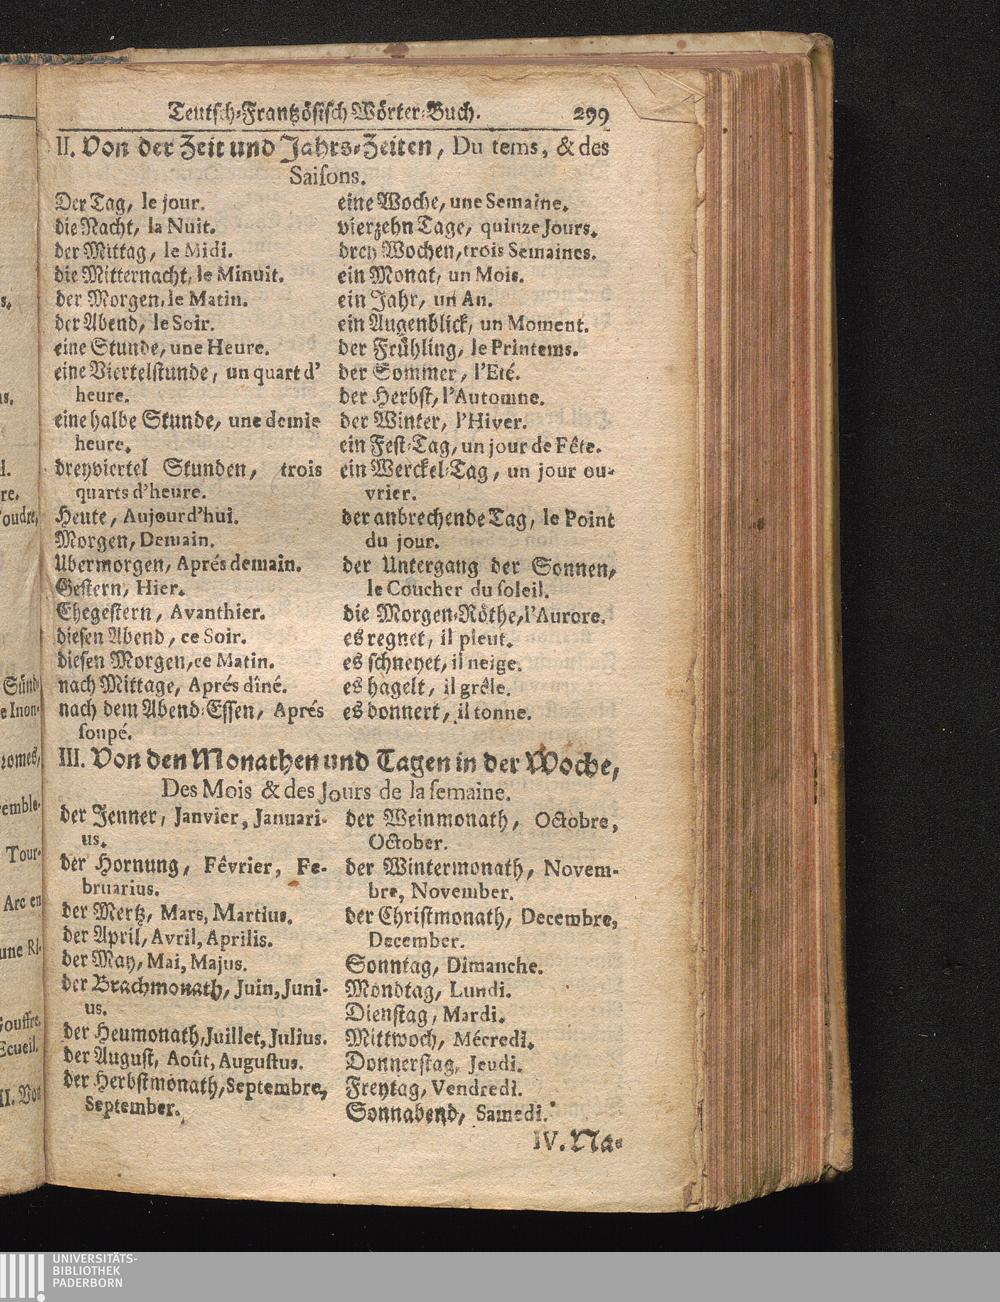 Teutsch-Frantzösisch Wörter-Buch. 299
II. Von der Zeit und Jahrs-Zeiten, Du tems, & des
Saisons.
Der Tag, le jour.
die Nacht, la Nuit.
der Mittag, le Midi.
die Mitternacht, le Minuit.
der Morgen, le Matin.
der Abend, le Soir.
eine Stunde, une Heure.
eine Viertelstunde, un quart d'
heure.
eine halbe Stunde, une demie
heure.
dreyviertel Stunden, trois
quarts d'heure.
Heute, Aujourd'hui.
Morgen, Demain.
Übermorgen, Aprés demain.
Gestern, Hier.
Ehegestern, Avanthier.
diesen Abend, ce Soir.
diesen Morgen, ce Matin.
nach Mittage, Aprés dîné.
nach dem Abend-Essen, Aprés
soupé.
eine Woche, une Semaine.
vierzehn Tage, quinze Jours.
drey Wochen, trois Semaines.
ein Monat, un Mois.
ein Jahr, un An.
ein Augenblick, un Moment.
der Frühling, le Printems.
der Sommer, l'Eté.
der Herbst, l'Automne.
der Winter, l'Hiver.
ein Fest-Tag, un jour de Fête.
ein Werckel-Tag, un jour ou-
vrier.
der anbrechende Tag, le Point
du jour.
der Untergang der Sonnen,
le Coucher du soleil.
die Morgen-Röthe, l'Aurore.
es regnet, il pleut.
es schneyet, il neige.
es hagelt, il grêle.
es donnert, il tonne.
III. Von den Monathen und Tagen in der Woche,
Des Mois & des Jours de la semaine.
der Jenner, Janvier, Januari-
us.
der Hornung, Février, Fe-
bruarius.
der Mertz, Mars, Martius.
der April, Avril, Aprilis.
der May, Mai, Majus.
der Brachmonath, Juin, Juni-
us.
der Heumonath, Juillet, Julius.
der August, Août, Augustus.
der Herbstmonath, Septembre,
September.
der Weinmonath, Octobre,
October.
der Wintermonath, Novem-
bre, November.
der Christmonath, Decembre,
December.
Sonntag, Dimanche.
Mondtag, Lundi.
Dienstag, Mardi.
Mittwoch, Mécredi.
Donnerstag, Jeudi.
Freytag, Vendredi.
Sonnabend, Samedi.
IV. Na-
UNIVERSITÄTS-
BIBLIOTHEK
PADERBORN